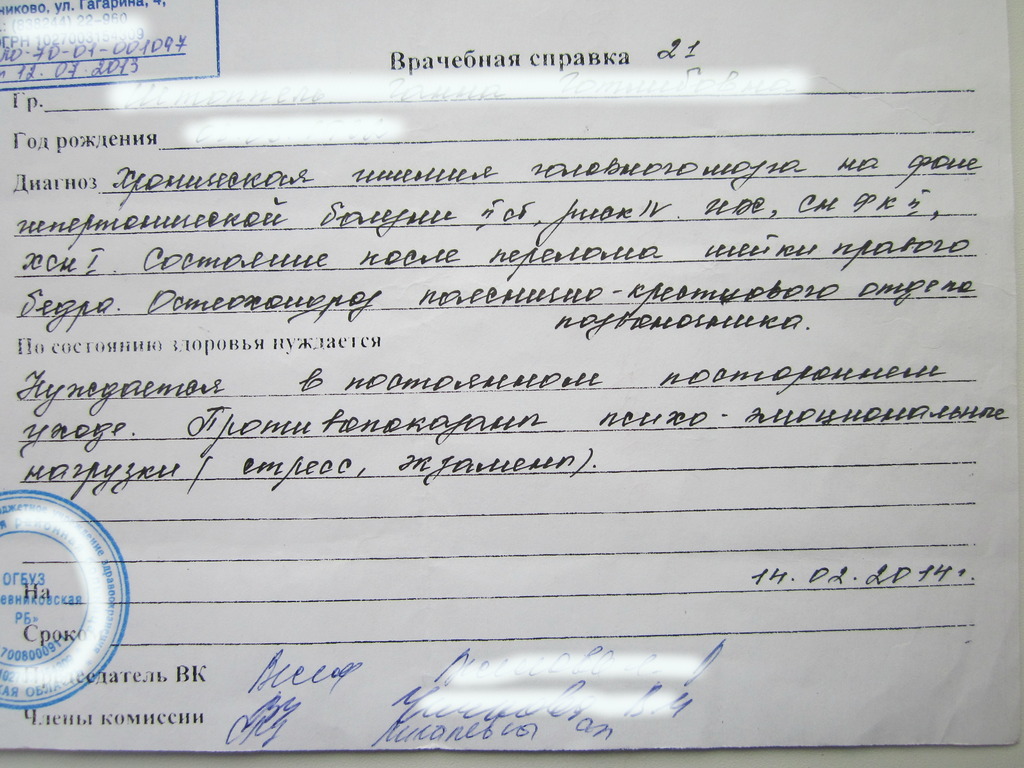 никово, ул. Гагарина, 4,
(838244) 22-960
ЛО-70-01-001097
12.07.2013
Врачебная справка 21
Гр.
Год рождения
Диагноз Хроническая ишемия головного мозга на фоне
гипертонической болезни II ст, риск IV. ИБС, Сн Ф к II,
ХСН I. Состояние после перелома шейки правого
бедра. Остеохондроз пояснично-крестцового отдела
позвоночника.
По состоянию здоровья нуждается
Нуждается в постоянном постороннем
уходе. Противопоказаны психо-эмоциональные
нагрузки (стресс, экзамены).
14.02.2014г.
ОГБУЗ
евниковская
РБ»
На
Сроко
Председатель ВК
Члены комиссии